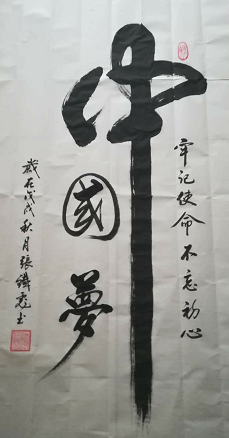 中國夢
牢记使命不忘初心
歲在戊戌秋月張鐵彪书